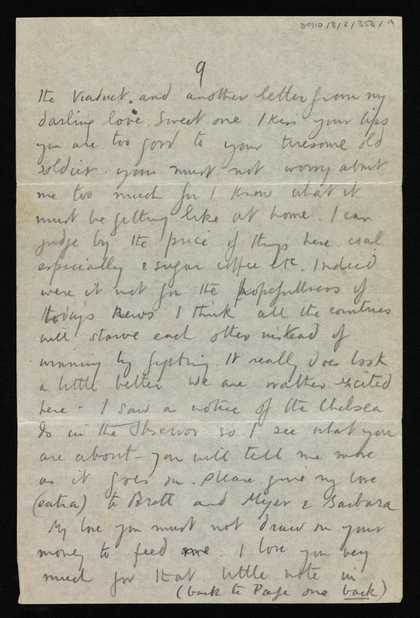 9
the Viaduct. and another letter from my
darling love. Sweet one I kiss your lips
you are too good to your tiresome old
soldier. you must not worry about
me too much for I know what it
must be getting like at home. I can
judge by the price of things here coal
especially & sugar coffee etc. Indeed
were it not for the hopefulness of
todays news I think all the countries
will starve each other instead of
winning by fighting. It really does look
a little better we are rather excited
here. I saw a notice of the Chelsea
do in the Observor so I see what you
are about – you will tell me more
as it goes on. Please give my love
(extra) to Bratt and Meyer & Barbara
My love you must not draw on your
money to feed me. I love you very
much for that little note in
(back to Page one back)